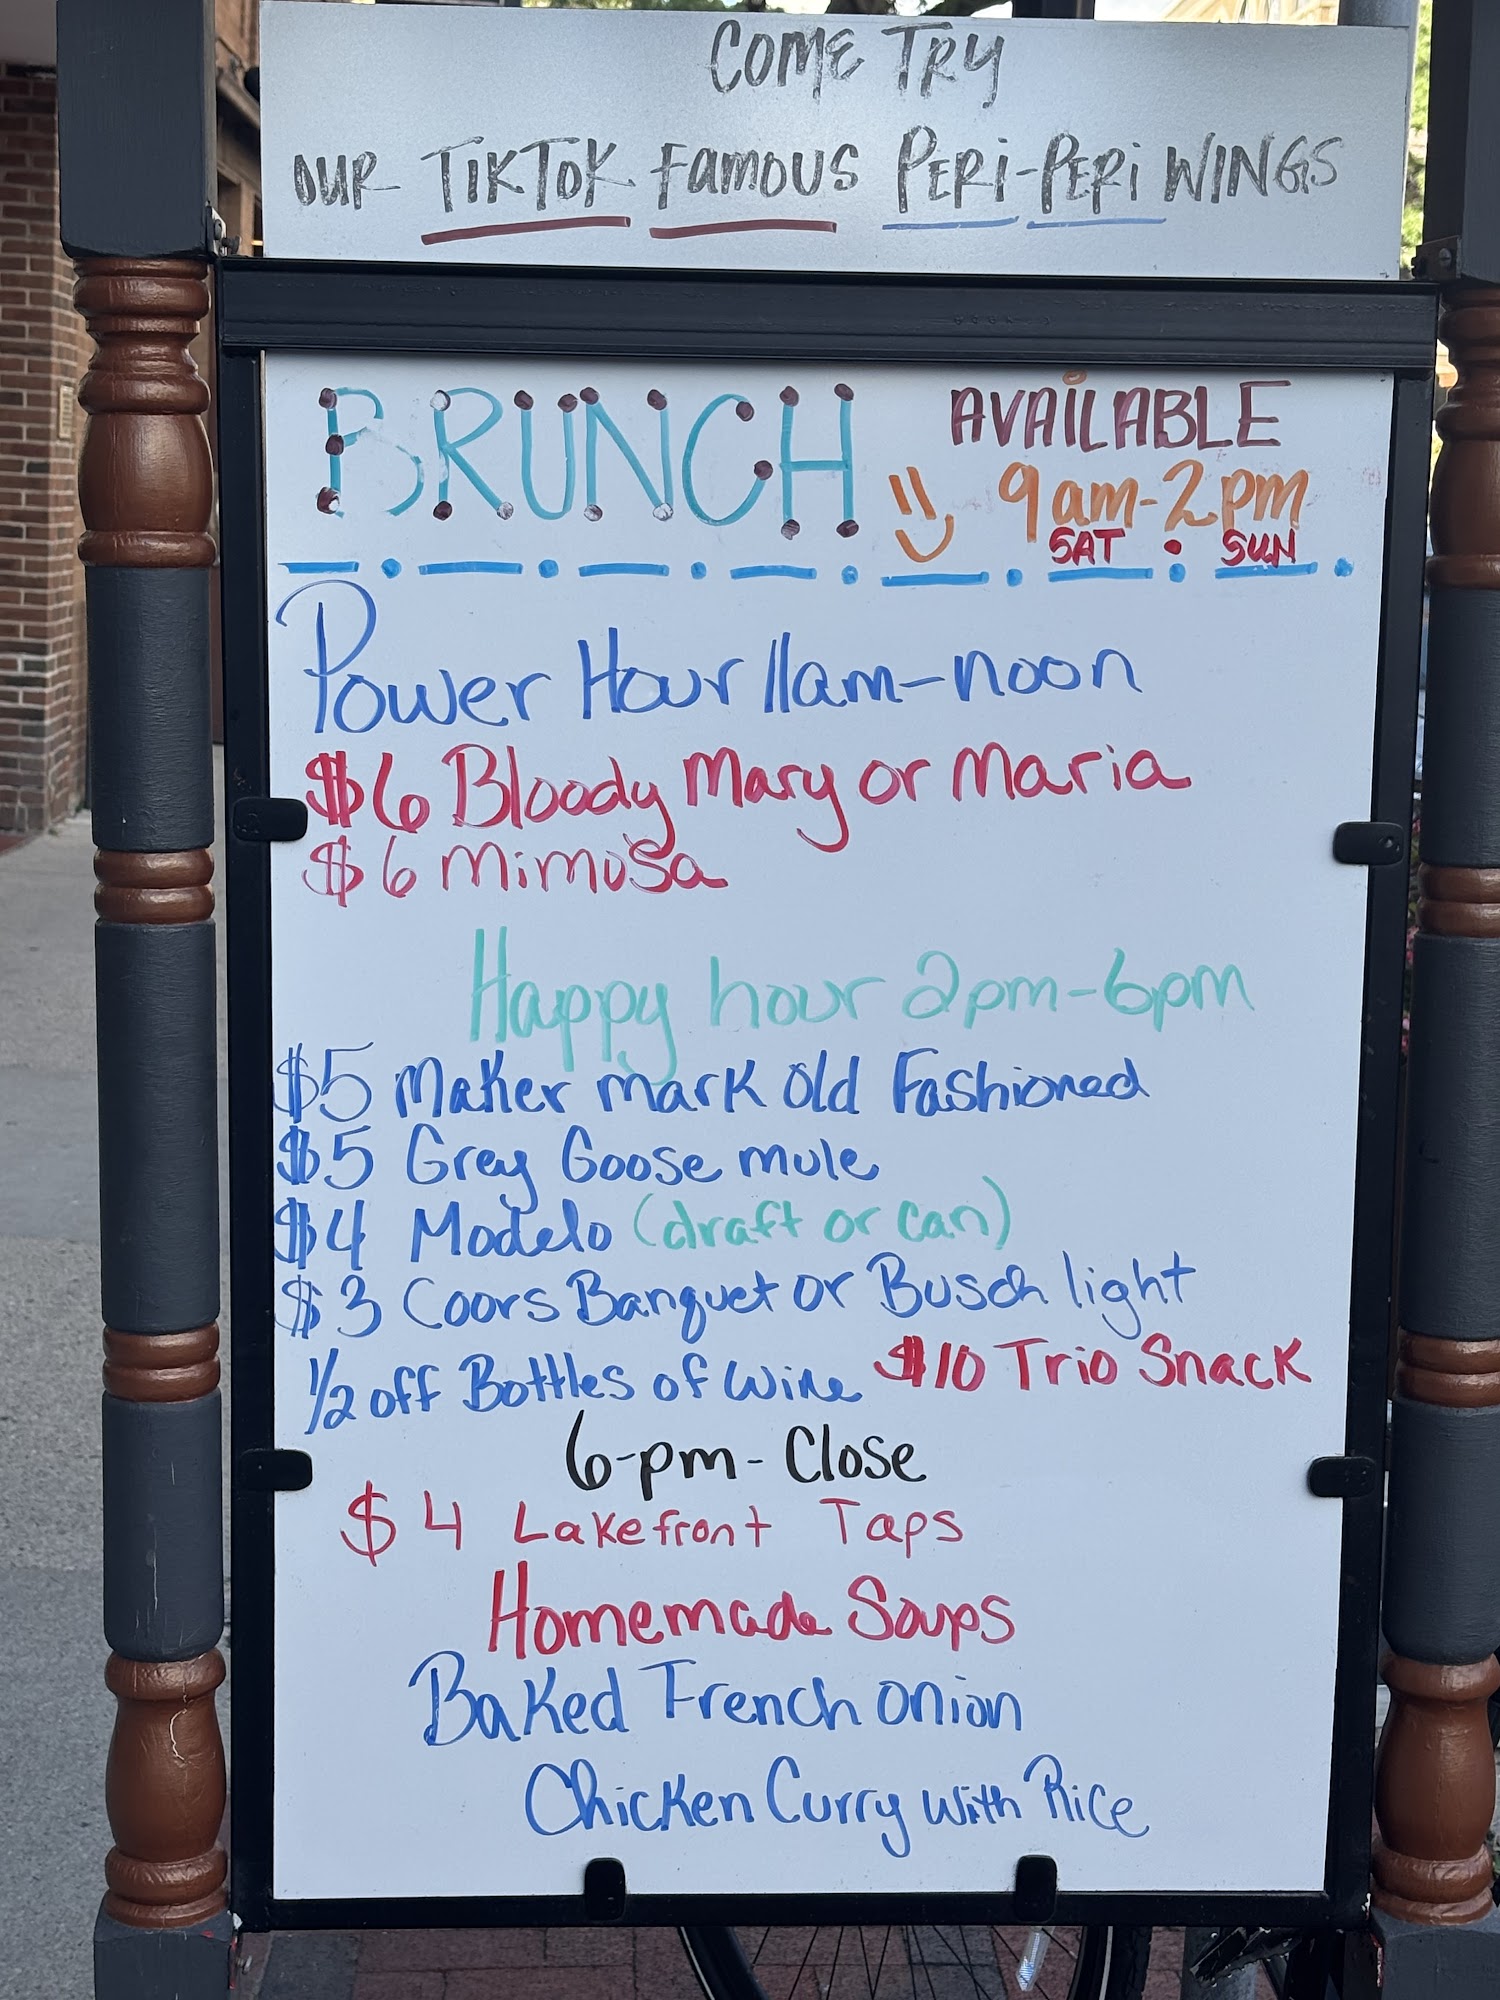 COME TRY
OUR TIKTOK FAMOUS PERI-PERI WINGS
BRUNCH AVAILABLE
9am-2pm
SAT • SUN
Power Hour 11am-noon
$6 Bloody Mary or Maria
$6 Mimosa
Happy hour 2pm-6pm
$5 Maker mark Old Fashioned
$5 Grey Goose mule
$4 Modelo (draft or can)
$3 Coors Banquet or Busch light
1/2 off Bottles of Wine $10 Trio Snack
6-pm- Close
$4 Lakefront Taps
Homemade Soups
Baked French onion
Chicken Curry with Rice